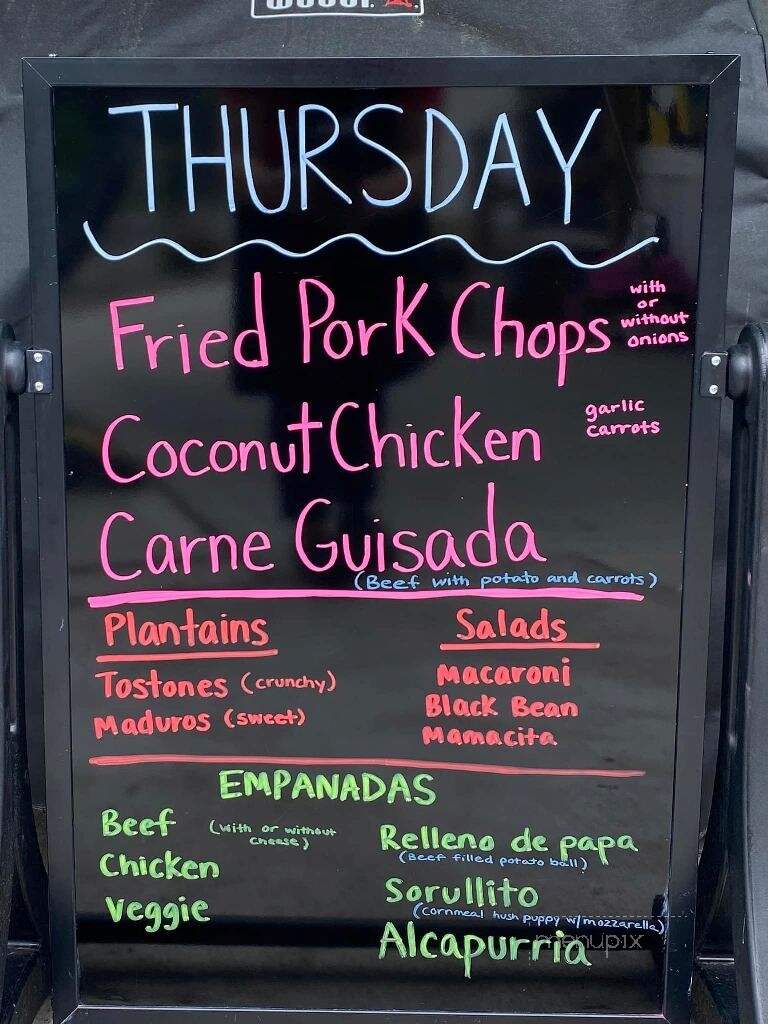 THURSDAY
Fried Pork Chops
with
or
without
onions
Coconut Chicken
garlic
carrots
Carne Guisada
(Beef with potato and carrots)
Plantains
Tostones (crunchy)
Maduros (sweet)
Salads
Macaroni
Black Bean
Mamacita
EMPANADAS
Beef (with or without
cheese)
Chicken
Veggie
Relleno de papa
(Beef filled potato ball)
Sorullito
(cornmeal hush puppy w/mozzarella)
Alcapurria
menupix